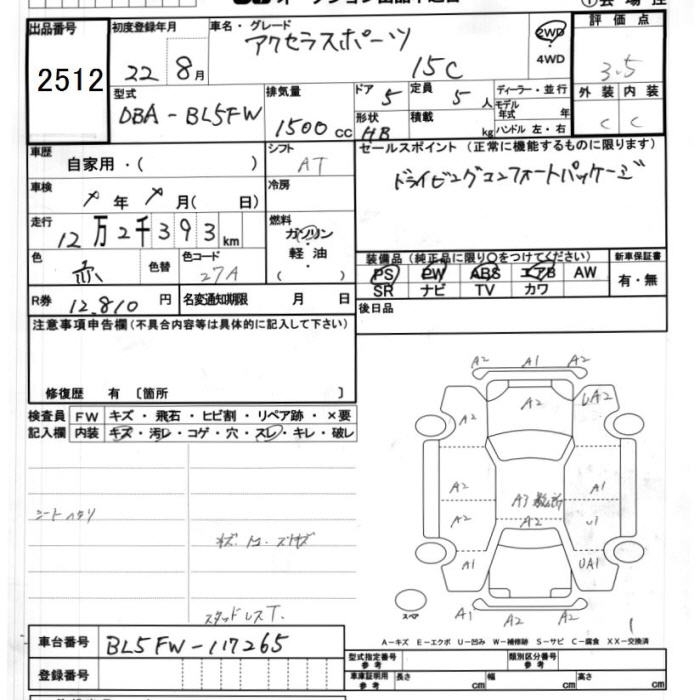 出品番号
2512
初度登録年月
22 8月
車名・グレード
アクセラスポーツ
15C
2WD
4WD
評価点
3.5
外装 内装
C C
型式
DBA-BL5FW
排気量
1500cc
ドア 5
定員 5人
形状 HB
積載 kg
ディーラー・並行
モデル年式 年
ハンドル 左・右
車歴
自家用・( )
シフト
AT
車検
年 月( 日)
冷房
走行
12万2千393km
燃料
ガソリン
軽油
( )
色
赤
色替
色コード
27A
R券 12,810円
名変通知期限 月 日
セールスポイント (正常に機能するものに限ります)
ドライビングコンフォートパッケージ
装備品 (純正品に限り○をつけてください)
新車保証書
PS PW ABS エアB AW
有・無
SR ナビ TV カワ
後日品
注意事項申告欄(不具合内容等は具体的に記入して下さい)
修復歴 有 〔箇所 〕
検査員 記入欄
FW キズ・飛石・ヒビ割・リペア跡・×要
内装 キズ・汚レ・コゲ・穴・スレ・キレ・破レ
シートヘタリ
スタッドレスT.
A2 A1 A2
A2 A2 UA2
A2 A1
A3
A2 A2 U1
A1 UA1
A1 A2 A2
スペア
A-キズ E-エクボ U-凹み W-補修跡 S-サビ C-腐食 XX-交換済
車台番号
BL5FW-117265
登録番号
型式指定番号 参考
類別区分番号 参考
車庫証明用 参考
長さ cm 幅 cm 高さ cm